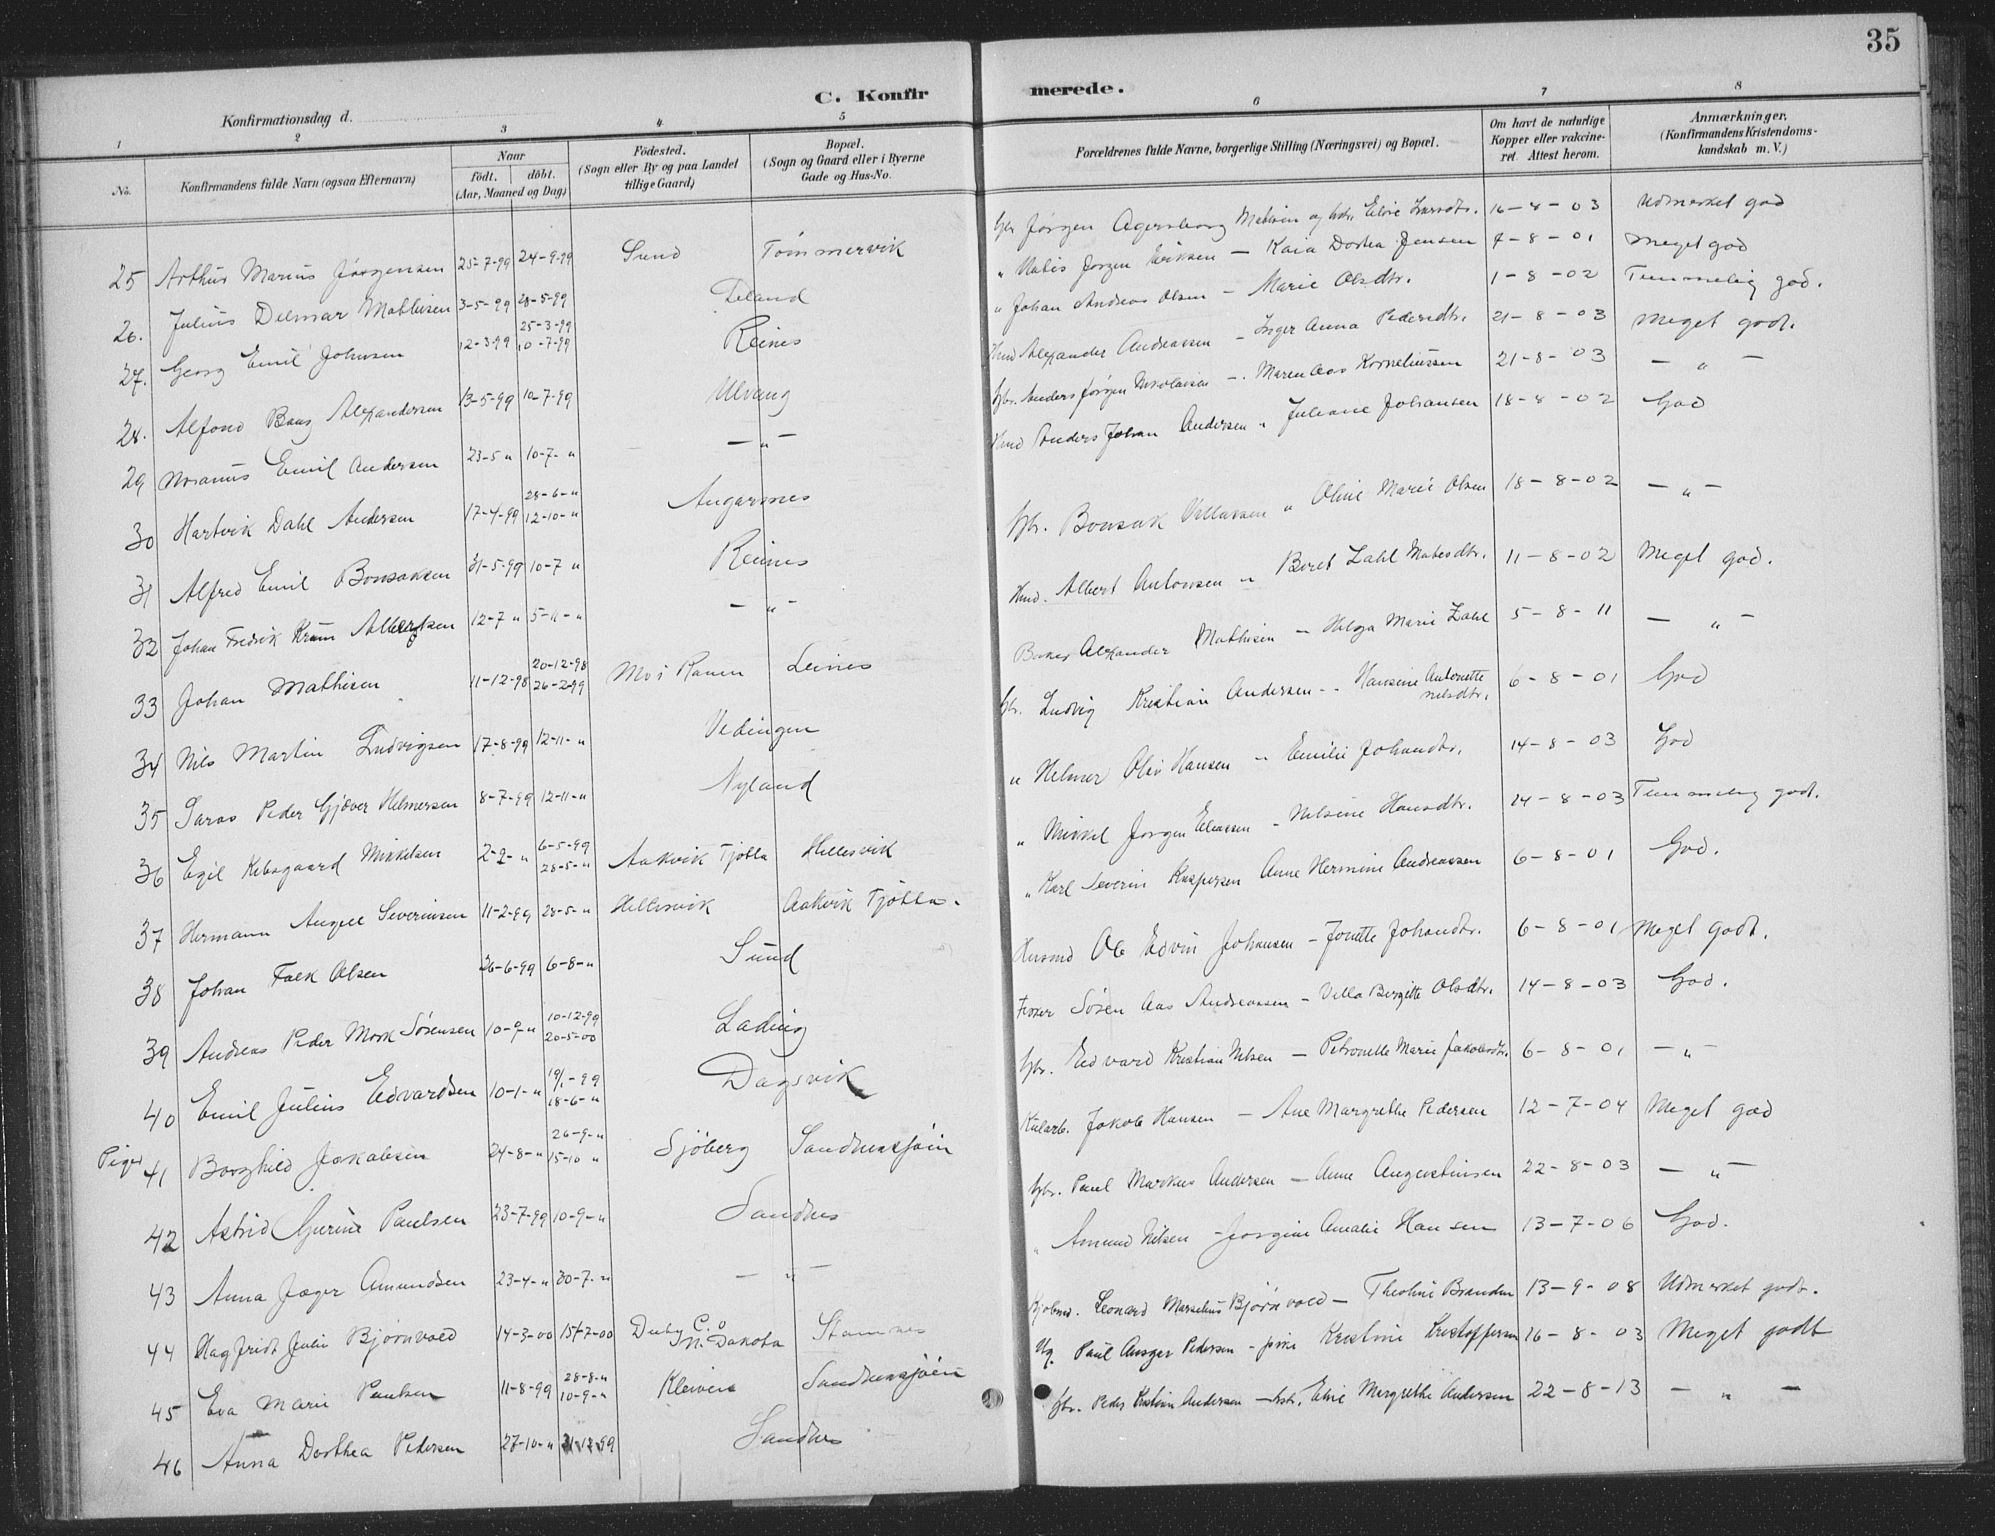 35
C. Konfir merede.
Konfirmationsdag d.
1 2 3 4 5 6 7 8
No.
Konfirmandens fulde Navn (ogsaa Efternavn)
Naar
født. döbt.
(Aar, Maaned og Dag)
Födested.
(Sogn eller By og paa Landet
tillige Gaard)
Bopæl.
(Sogn og Gaard eller i Byerne
Gade og Hus-No.
Forældrenes fulde Navne, borgerlige Stilling (Næringsvei) og Bopæl.
Om havt de naturlige
Kopper eller vakcine-
ret. Attest herom.
Anmærkninger.
(Konfirmandens Kristendoms-
kundskab m. V.)
25 Arthur Marius Jørgensen 25-7-99 24-9-99 Sund Tømmervik Jørgen Agersborg 16-8-03 Udmerket god
26. Julius Delmar Mathisen 3-5-99 28-5-99 Jørgen Eriksen — Kaia Dorthea Jensen 7-8-01 Meget god
27. Georg Emil Johnsen 12-3-99 25-3-99 10-7-99 Reines " Johan Andreas Olsen — Marie Olsdtr. 1-8-02 Temmelig god.
28. Alfond Bang Alexandersen 13-5-99 10-7-99 Ulvang Alexander Andreassen — Inger Anna Pedersdtr. 21-8-03 Meget godt.
29 Emil Andersen 23-5 " 10-7- " — " — Gbr. Anders Jørgen Nikolaisen —. Maren Aas Korneliussen 21-8-03 — " —
30 Hartvik Dahl Andersen 17-4-99 28-6-" 12-10-" Angarsnes Anders Johan Andersen " Juliane Johansen 18-8-02 God
31 Alfred Emil Bonsaksen 31-5-99 10-7 " Reines Gbr. Bonsak " Oline Marie Olsen 18-8-02 — " —
32 Johan Fredrik Krum 12-7 " 5-11-" — " — Albert Antonsen " Beret Zahl Matesdtr. 11-8-02 Meget god.
33 Johan Mathisen 11-12-98 20-12-98 26-2-99 Mo i Ranen Leines Alexander Mathisen — Helga Marie Zahl 5-8-11 — " —
34 Nils Martin Ludvigsen 17-8-99 12-11-" Vedingen Gbr. Ludvig Kristian Andersen -- Hansine Antonette Nilsdtr. 6-8-01 God
35 Peder Gjæver Helmersen 8-7-99 12-11-" Nyland " Helmer Olai Hansen " Emilie Johandtr. 14-8-03 God
36 Egil Mikkelsen 2-2-" 6-5-99 28-5-" Aakvik Tjøtta Hellesvik " Mikkel Jørgen Eliassen - Nilsine Hansdtr. 14-8-03 Temmelig godt.
37 Hermann Angell Severinsen 11-2-99 28-5-" Hellesvik Aakvik Tjøtta. " Karl Severin Kaspersen Anne Hermine Andreassen 6-8-01 God.
38 Johan Falk Olsen 26-6-99 6-8-" Sund Ole Edvin Johansen — Jonette Johandtr. 6-8-01 Meget godt.
39 Andreas Peder Mork Sørensen 10-9-" 10-12-99 20-5-00 Lading Søren Aas Andreassen — Villa Birgitte Olsdtr. 14-8-03 God.
40 Emil Julius Edvardsen 10-1-" 19/1-99 18-6-" Dagsvik Gbr. Edvard Kristian Nilsen — Petronelle Marie Jakobsdtr. 6-8-01 — " —
Piger 41 Borghild Jakobsen 24-8-" 26-9-" 15-10 " Sjøberg Sandnessjøen Jakob Hansen — Ane Margrethe Pedersen 12-7-04 Meget god
42 Astrid Gurine Paulsen 23-7-99 10-9-" Sandnes Gbr. Paul Markus Andersen — Anne Augustinsen 22-8-03 — " —
43 Anna Jæger Amundsen 23-4-" 30-7-" — " — " Amund Nilsen — Jørgine Amalie Hansen 13-7-06 God.
44 Dagfridt Julie Bjørnvold 14-3-00 15/7-00 N. Dakota Stamnes Leonard Marselius Bjørnvold — Theoline Brandon 13-9-08 Udmerket godt.
45 Eva Marie Paulsen 11-8-99 28-8-" 10-9-" Kleiven Sandnessjøen Ug. Paul Ansger Pedersen - pike Kristine Kristoffersen 16-8-03 Meget godt
46 Anna Dorthea Pedersen 27-10-" 31-12-99 Sandnes Gbr. Peder Kristian Andersen — hstr. Elvie Margrethe Andersen 22-8-13 — " —